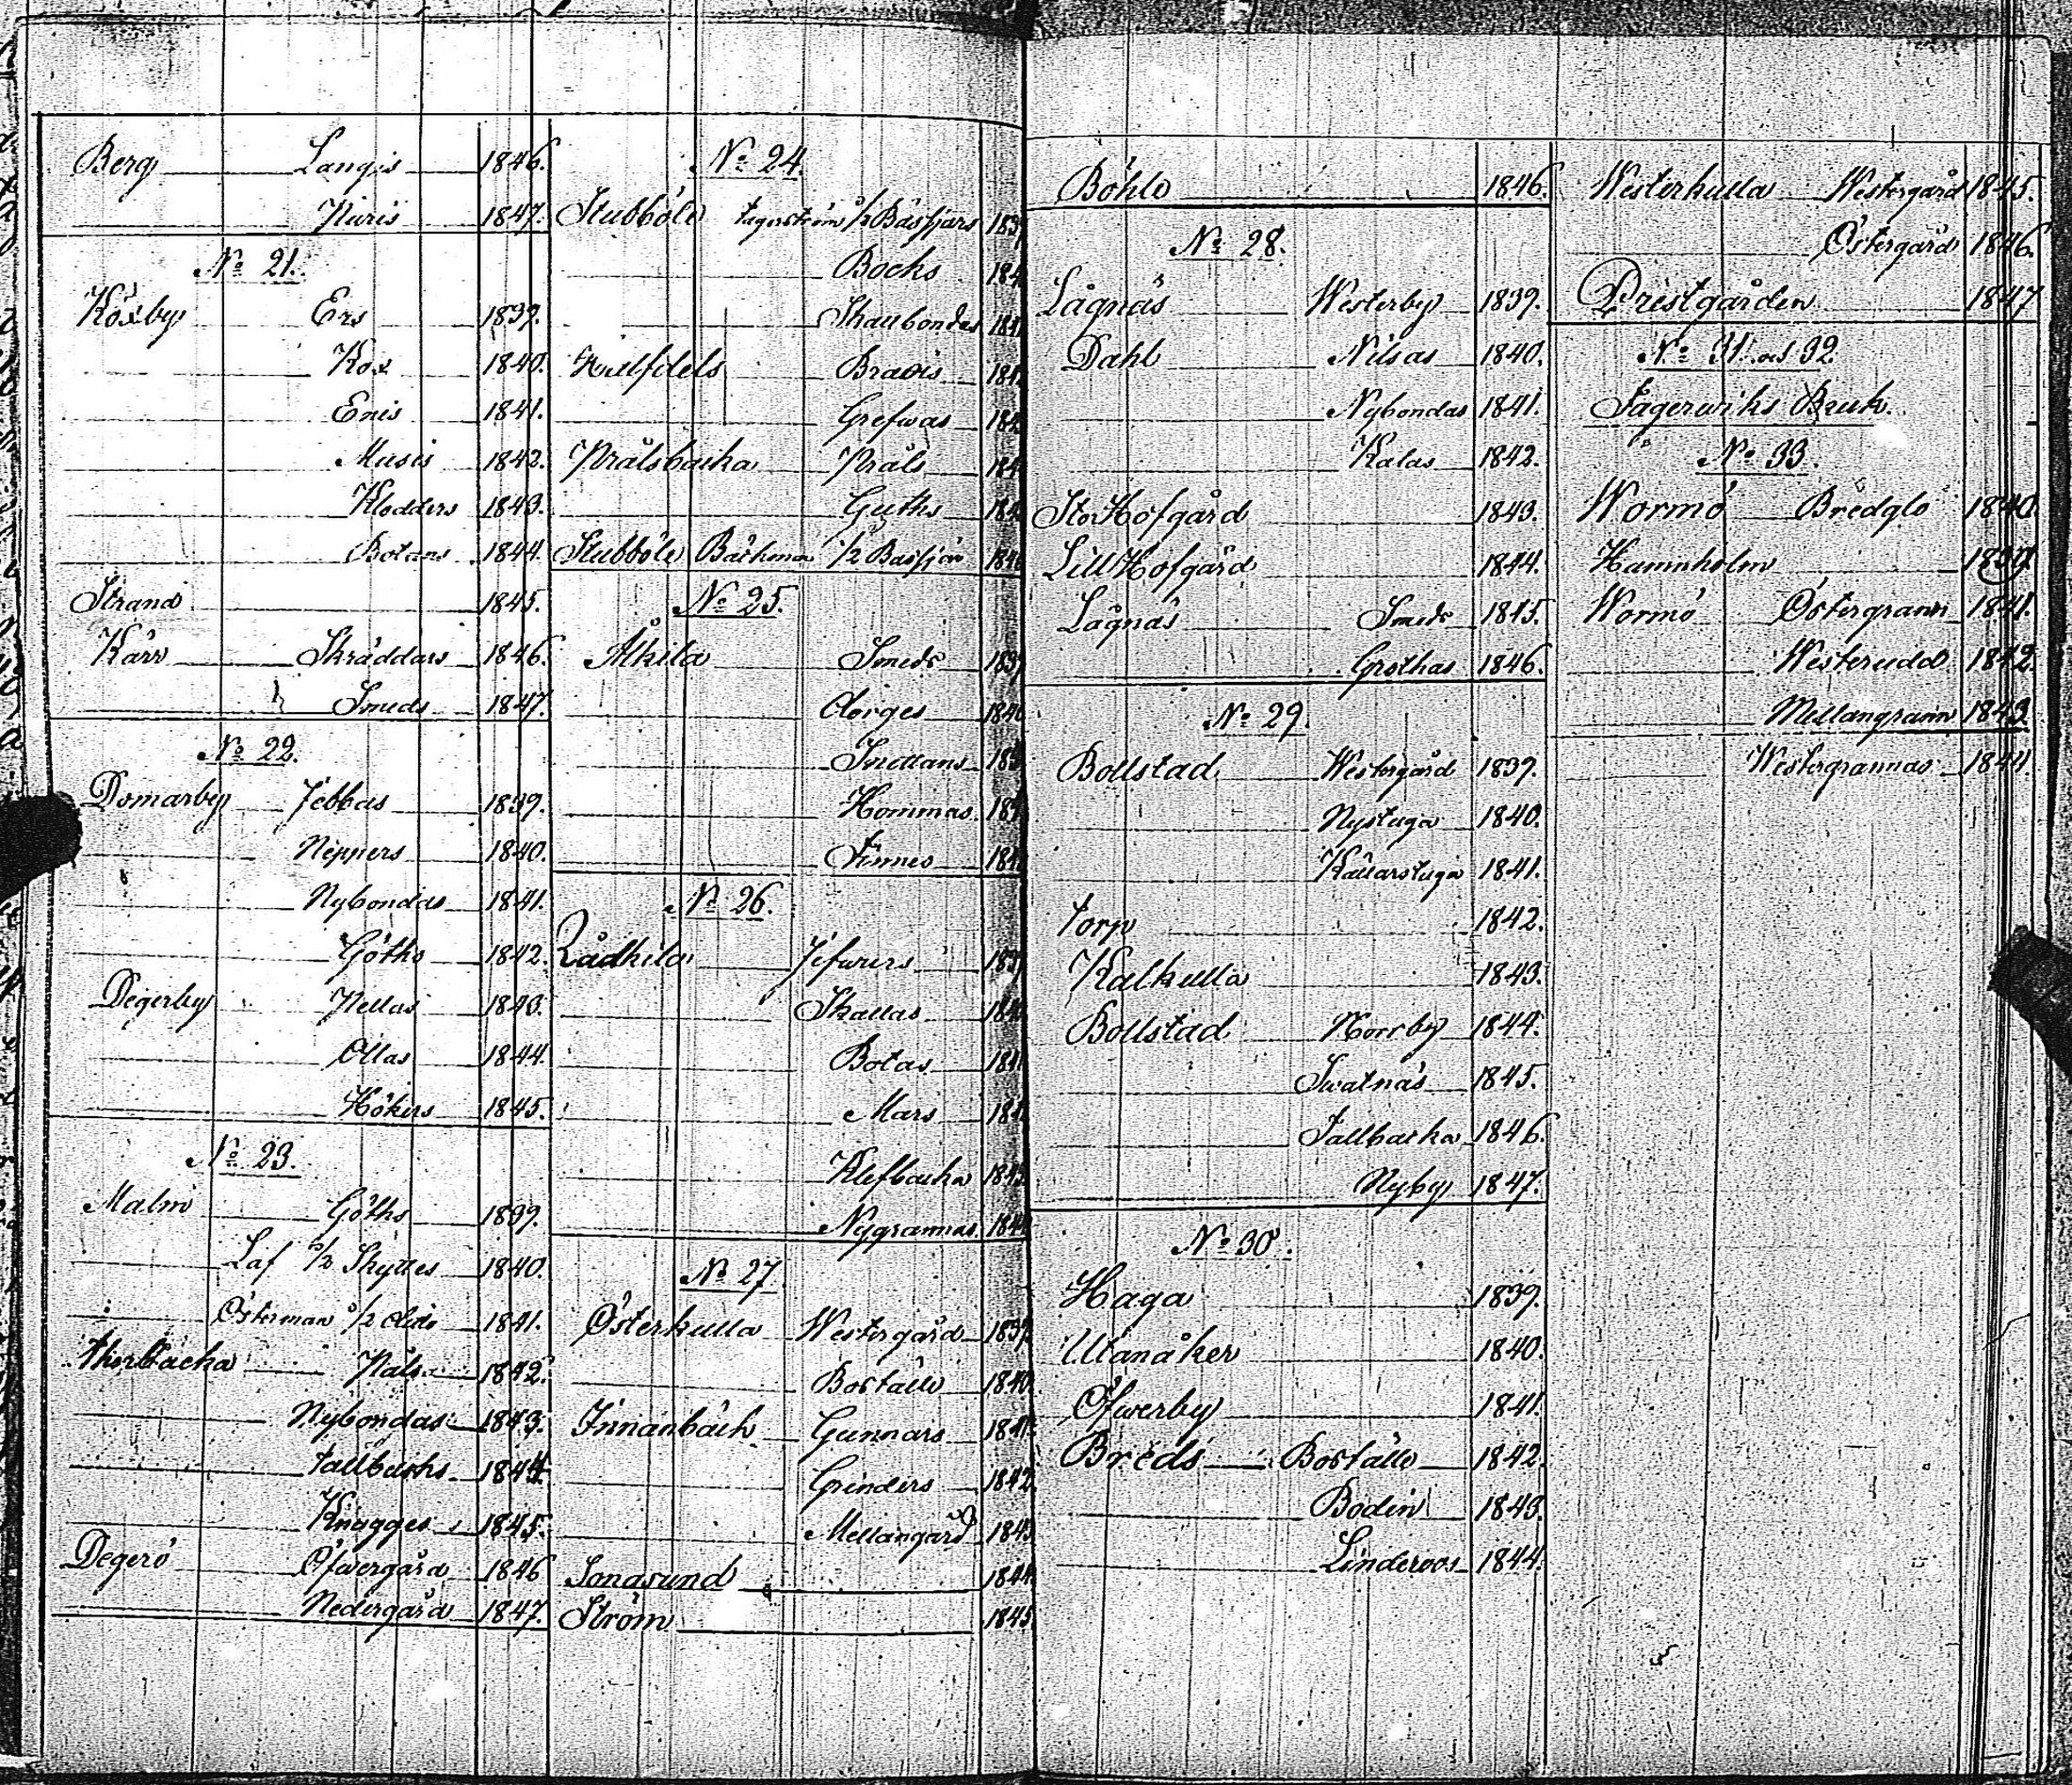 Berg Langis 1846.
Nuris 1847.
No 21.
Köxby Ers 1839.
Kox 1840.
Enis 1841.
Musis 1842.
Klodders 1843.
Botans 1844.
Strand 1845.
Kärr Skräddars 1846.
Smeds 1847.
No 22.
Domarby Jebbas 1839.
Neppers 1840.
Nybondas 1841.
Göths 1842.
Degerby Nellas 1843.
Ollas 1844.
Hökers 1845.
No 23.
Malm Göths 1839.
Laf 1/2 Skyttes 1840.
Österman 1/2 dido 1841.
Thorbacka Nåls 1842.
Nybondas 1843.
Tallbacks 1844
Knagges 1845.
Degerö Öfwergård 1846
Nedergård 1847.
No 24.
Stubböle Fagerström 1/2 Båsfjärs
Bocks
Skaubondas
Bravis
Grefwas
Prålsbacka Pråls
Guths
Stubböle Bäckman 1/2 Basfjär
No 25.
Ålkila Smeds
Görges
Smedans
Hommas
Finnes
No 26.
Rådkila Jefwers
Skallas
Botas
Mars
Klefbacka 1843
Nygrannas
No 27.
Österkulla Westergård
Boställe 1840
Innanbäck Gunnars
Grinders 1842
Mellangård 1843
Sonasund 1844
Ström 1845
Böhle 1846.
No 28.
Lågnäs Westerby 1839.
Dahl Nilsas 1840.
Nybondas 1841.
Kalas 1842.
Stor Hofgård 1843.
Lill Hofgård 1844.
Lågnäs Smeds 1845.
Grothas 1846.
No 29.
Bollstad Westergård 1839.
Nystuga 1840.
Källarstuga 1841.
Torp 1842.
Kalkulla 1843.
Bollstad Norrby 1844.
Swatnäs 1845.
Tallbacka 1846.
Nyby 1847.
No 30.
Haga 1839.
Utanåker 1840.
Öfwerby 1841.
Breds Boställe 1842.
Bodin 1843.
Linderoos 1844.
Westerkulla Westergård 1845.
Östergård 1846.
Prestgården 1847
No 31. och 32.
Fagerwiks Bruk.
No 33.
Wormö Bredglo 1840.
Hamnholm 1839.
Wormö Östergrann 1841.
Westerudd 1842.
Mellangrann 1843
Westergrannas 1844.